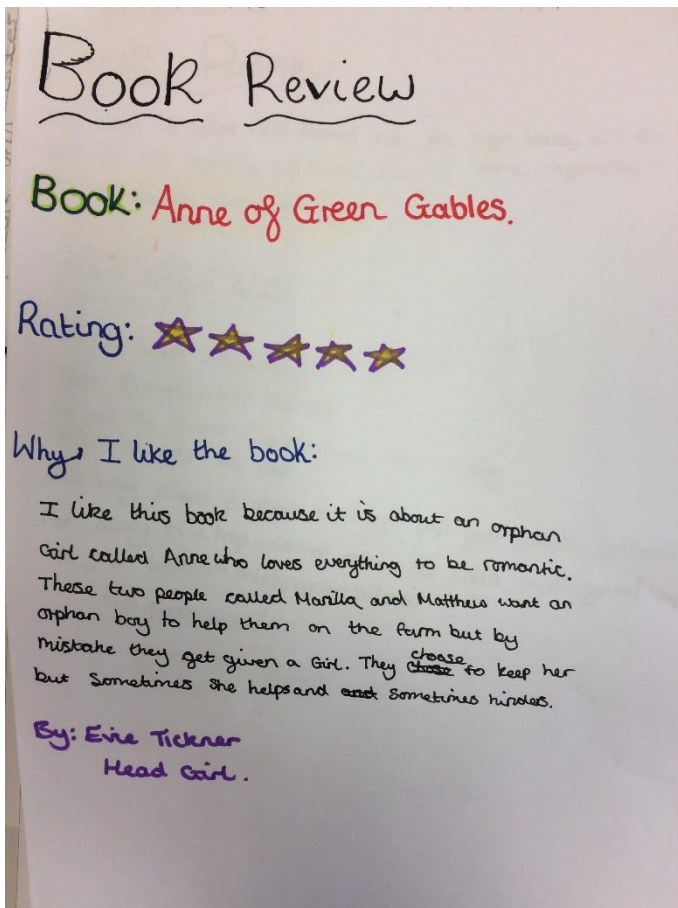 Book Review
Book: Anne of Green Gables.
Rating:
Why I like the book:
I like this book because it is about an orphan
Girl called Anne who loves everything to be romantic.
These two people called Marilla and Matthew want an
orphan boy to help them on the farm but by
mistake they get given a Girl. They choose to keep her
but Sometimes She helps and Sometimes hinders.
By: Evie Tickner
Head Girl.